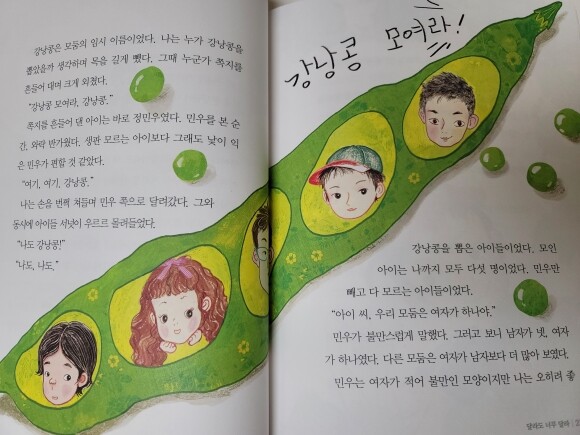 강낭콩은 모둠의 임시 이름이었다. 나는 누가 강낭콩을
뽑았을까 생각하며 목을 길게 뺐다. 그때 누군가 쪽지를
흔들어 대며 크게 외쳤다.
“강낭콩 모여라, 강낭콩.”
쪽지를 흔들어 댄 아이는 바로 정민우였다. 민우를 본 순
간, 와락 반가웠다. 생판 모르는 아이보다 그래도 낯이 익
은 민우가 편할 것 같았다.
“여기, 여기, 강낭콩.”
나는 손을 번쩍 쳐들며 민우 쪽으로 달려갔다. 그와
동시에 아이들 서넛이 우르르 몰려들었다.
“나도 강낭콩!”
“나도, 나도.”
강낭콩 모여라!
강낭콩을 뽑은 아이들이었다. 모인
아이는 나까지 모두 다섯 명이었다. 민우만
빼고 다 모르는 아이들이었다.
“아이 씨, 우리 모둠은 여자가 하나야.”
민우가 불만스럽게 말했다. 그러고 보니 남자가 넷, 여자
가 하나였다. 다른 모둠은 여자가 남자보다 더 많아 보였다.
민우는 여자가 적어 불만인 모양이지만 나는 오히려 좋
달라도 너무 달라